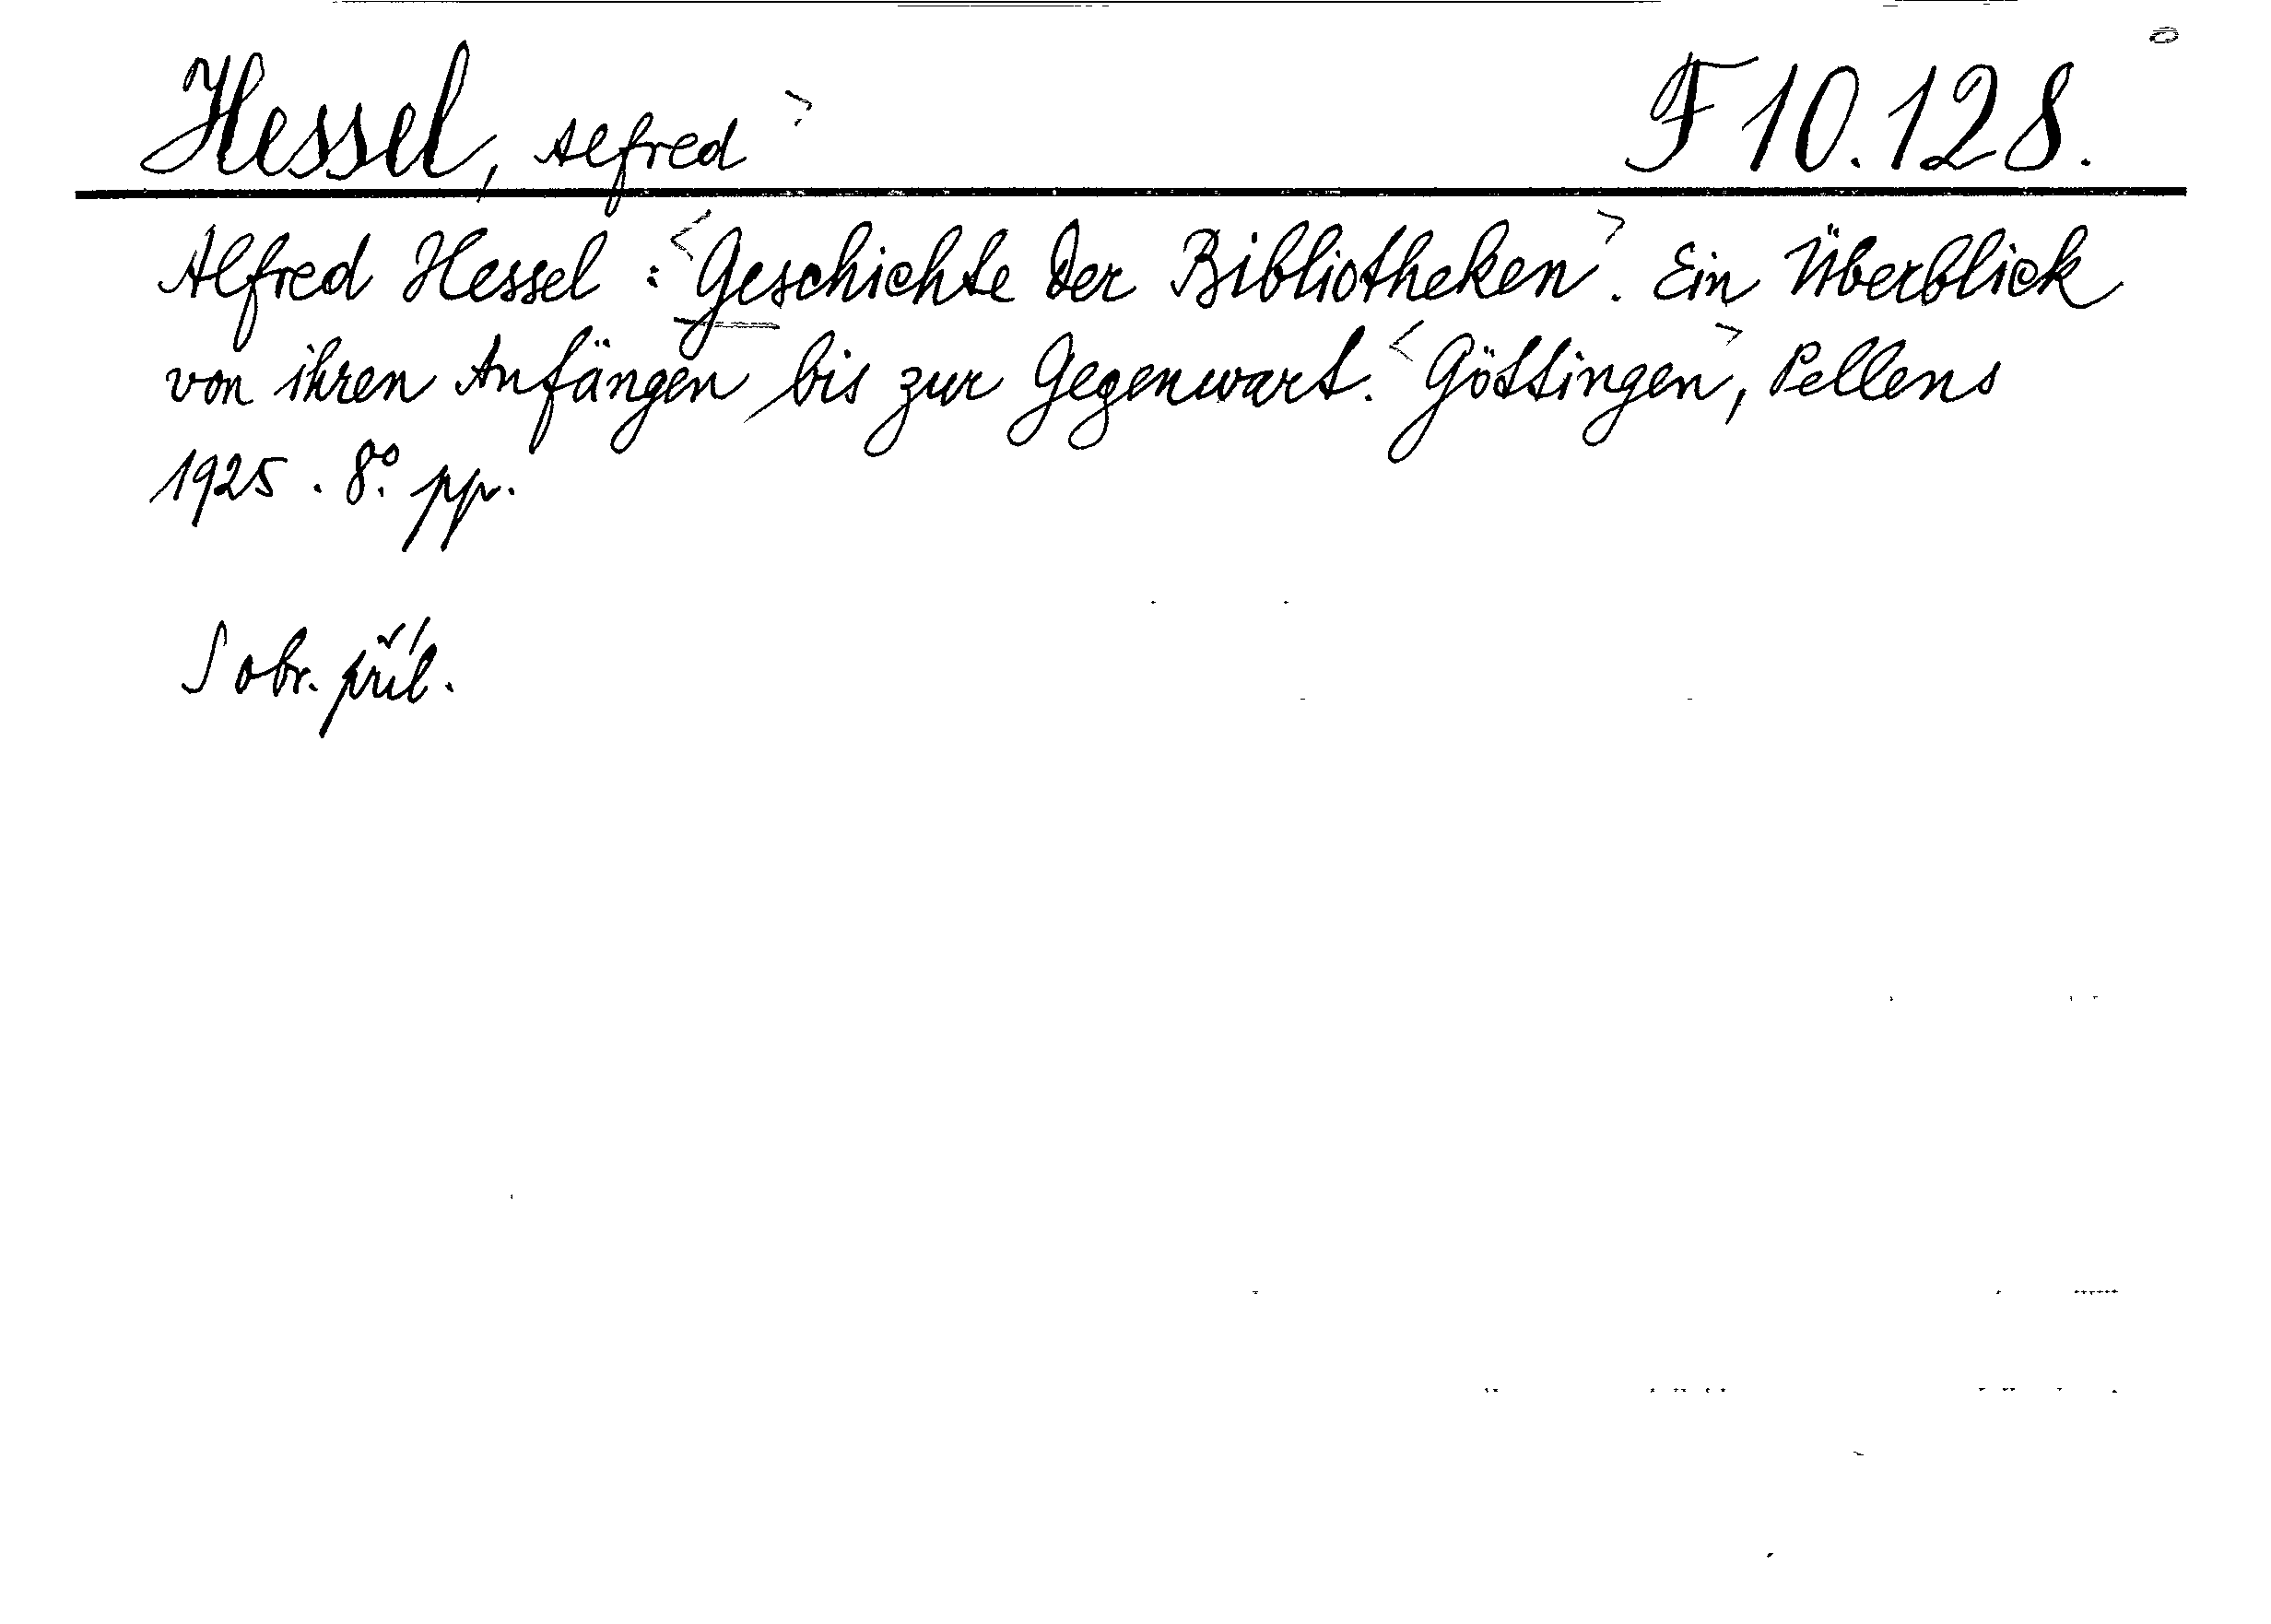 Hessel, Alfred> F 10.128.
Alfred Hessel : <Geschichte der Bibliotheken>. Ein Überblick
von ihren Anfängen bis zur Gegenwart. <Göttingen>, Pellens
1925. 8°. pp.
S obr. příl.